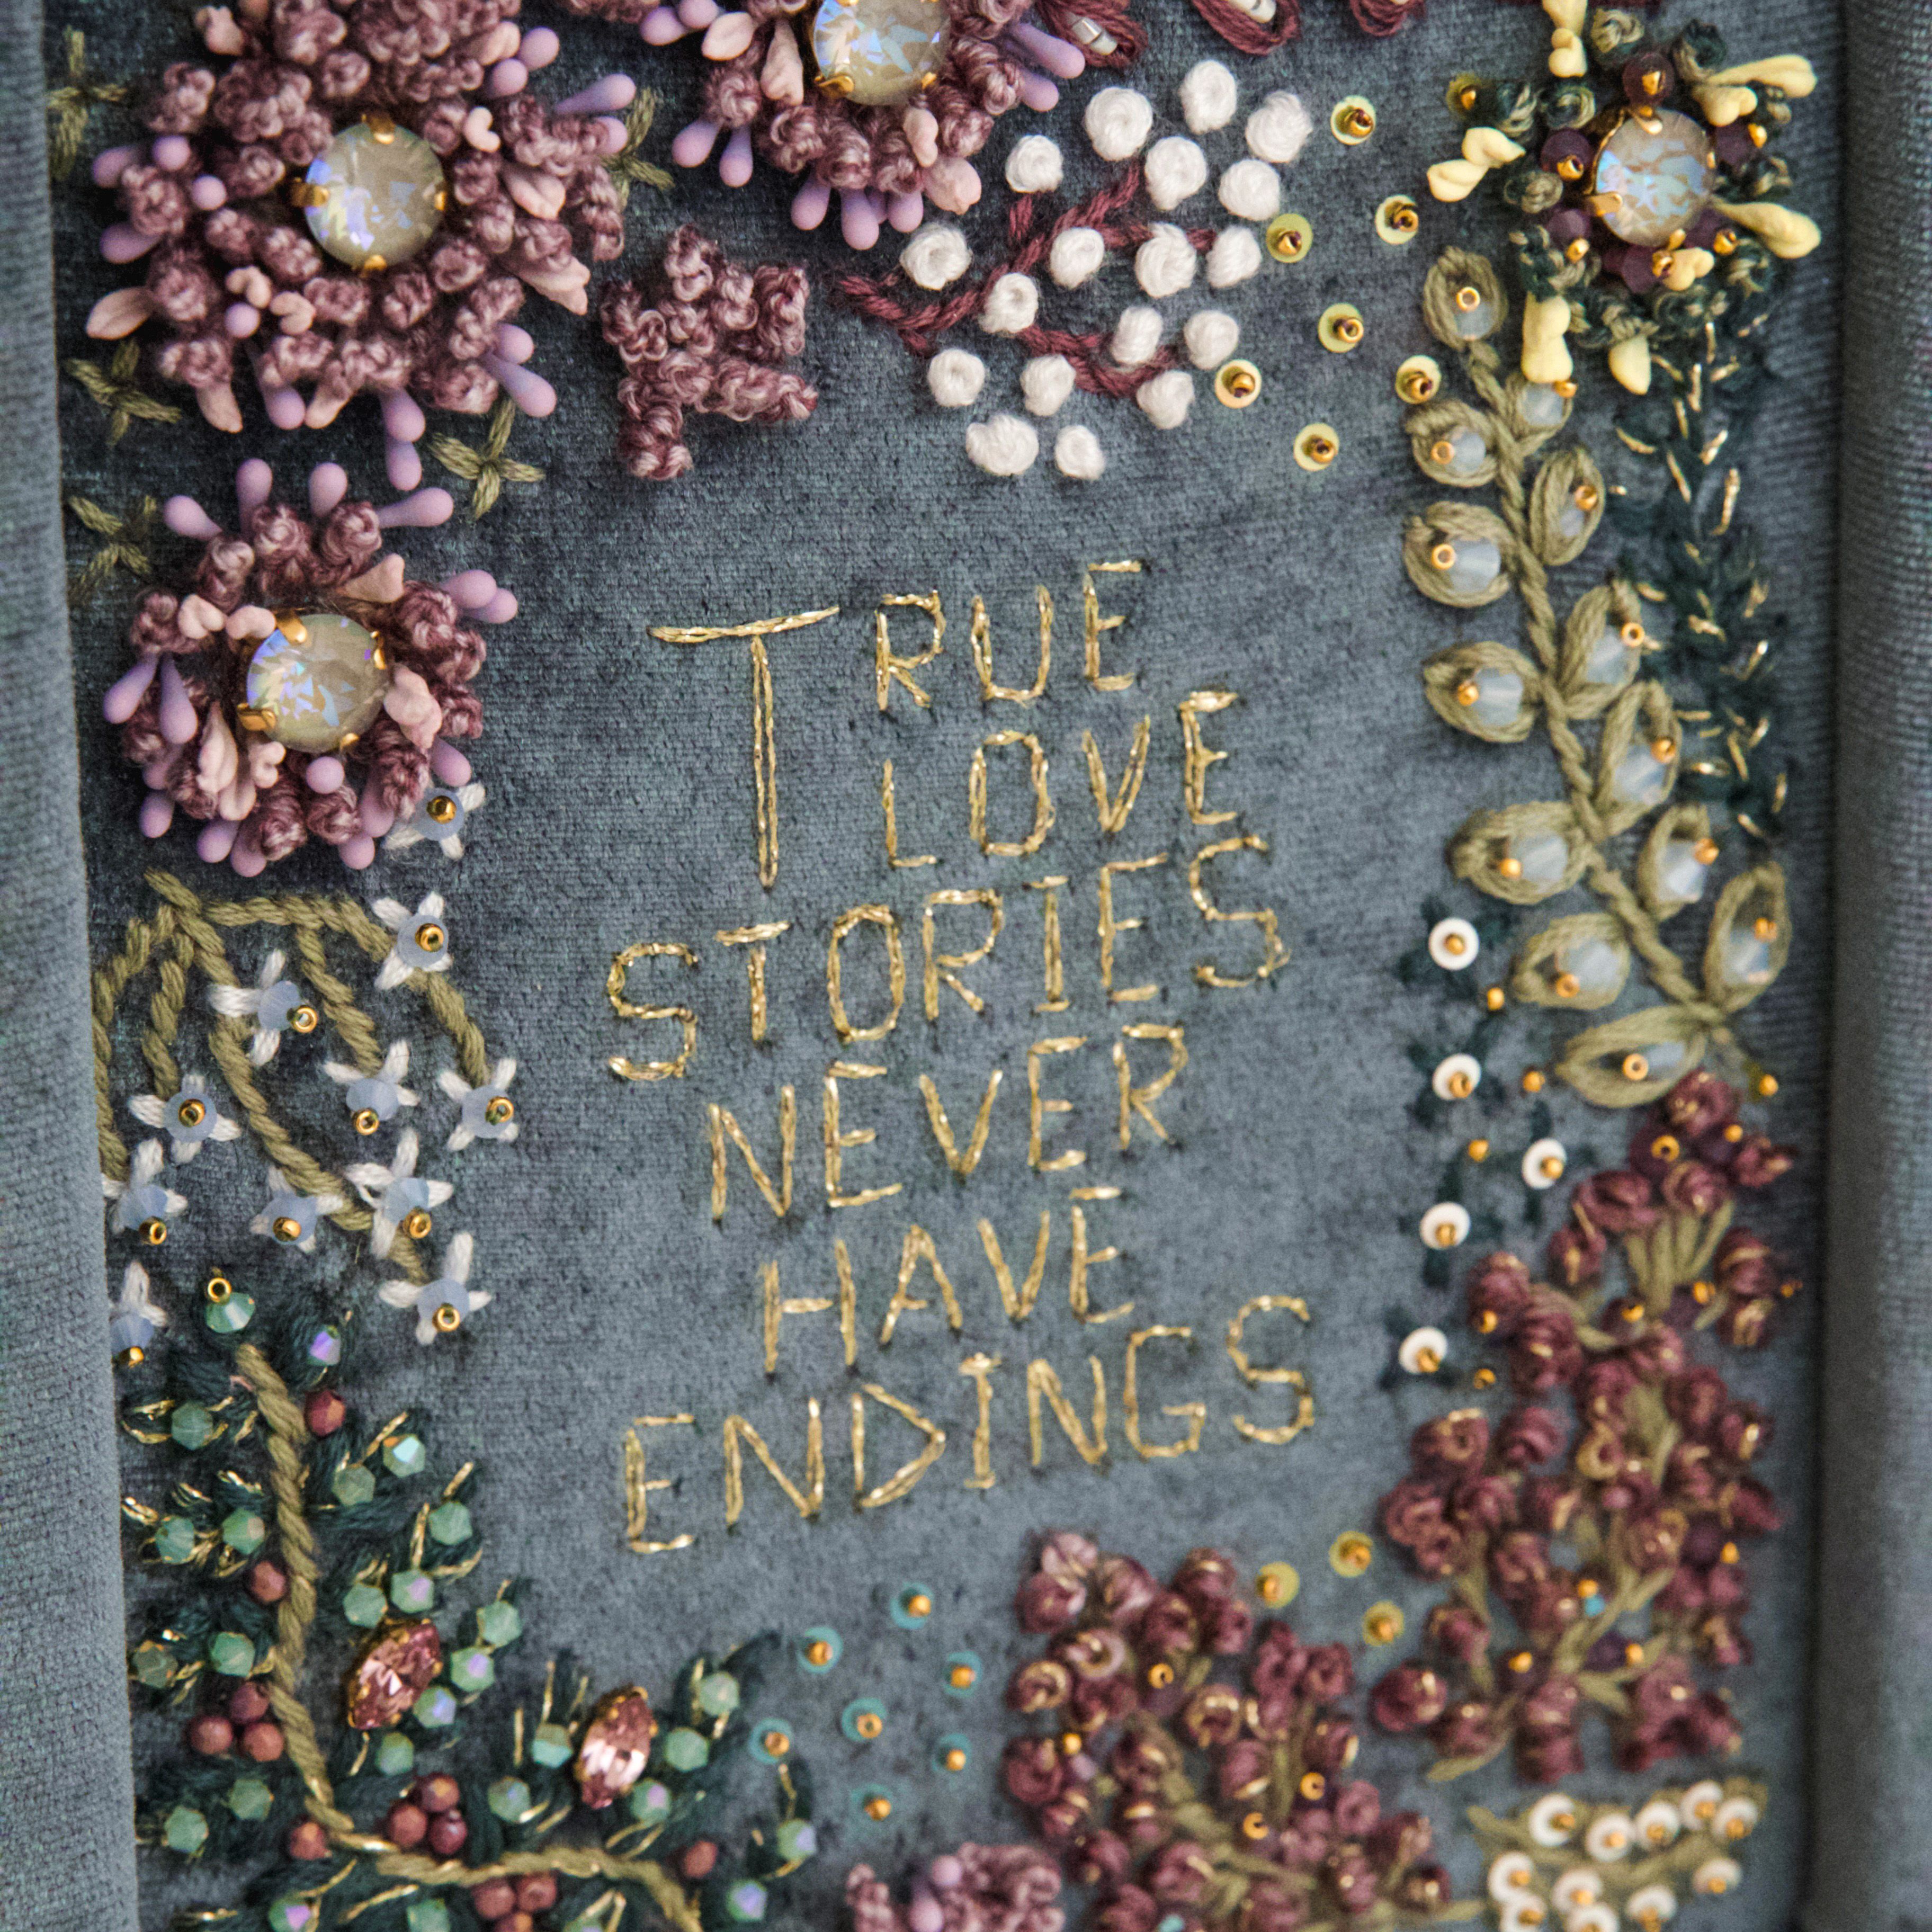 TRUE
LOVE
STORIES
NEVER
HAVE
ENDINGS